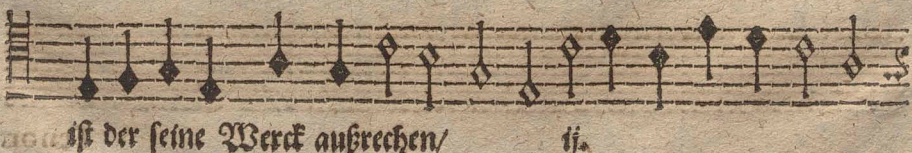 ist der seine Werck außrechen/ ij.